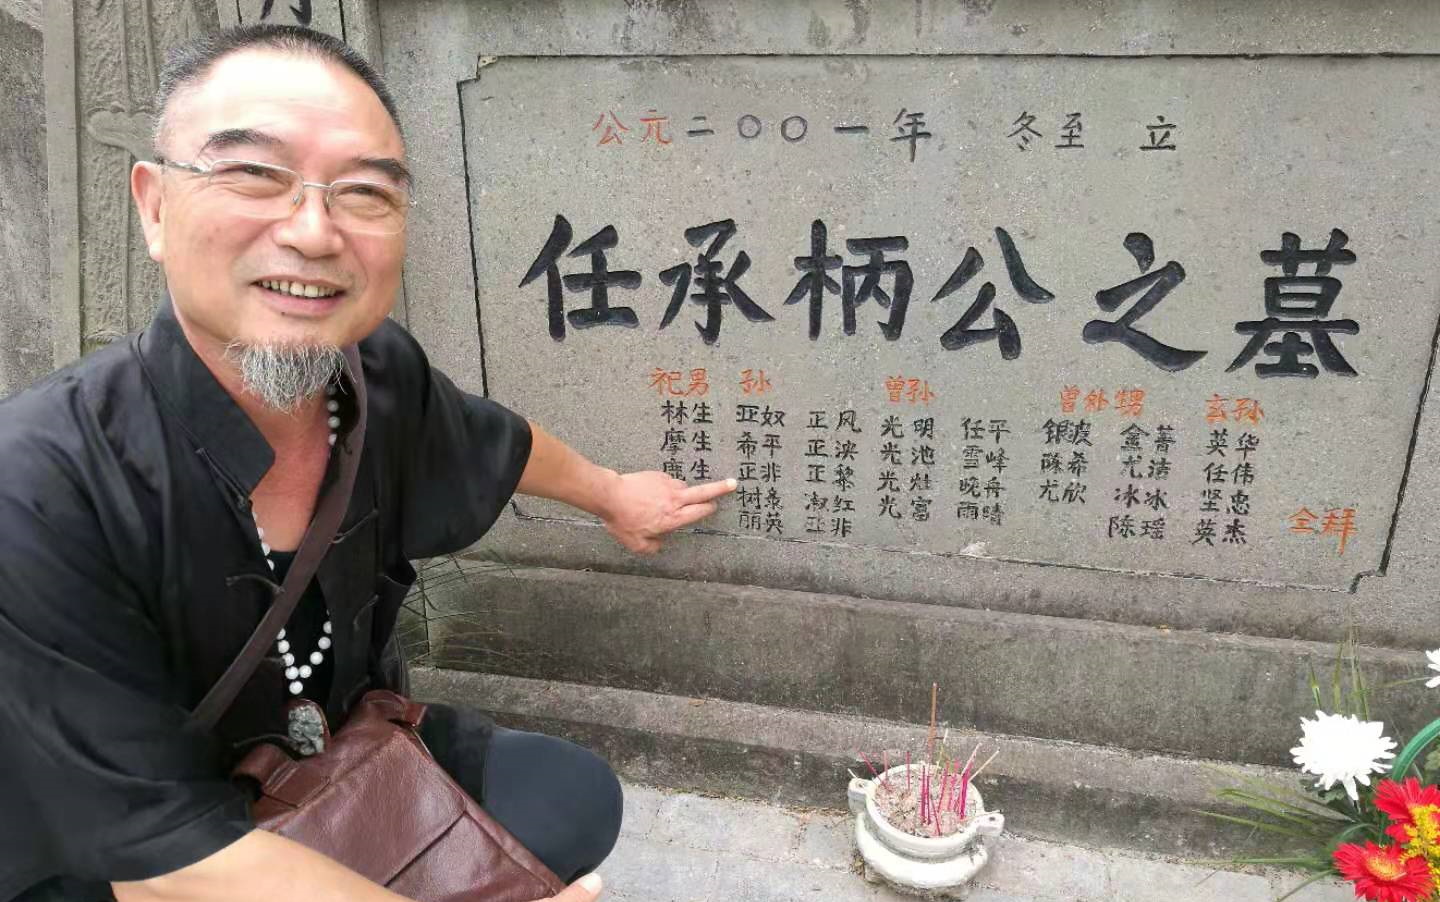 公元二〇〇一年 冬至 立
任承柄公之墓
祀男 孙 曾孙 曾外甥 玄孙
林生 亚奴 正风 光明 任平 银波 金菁 英华
摩生 希平 正泱 光池 雪峰 陈希 尤洁 任伟
鹿生 正非 正黎 光灶 晚舟 尤欣 冰冰 坚忠
树 淑红 光富 雨晴 陈瑶 英杰
丽英 亚非
仝拜